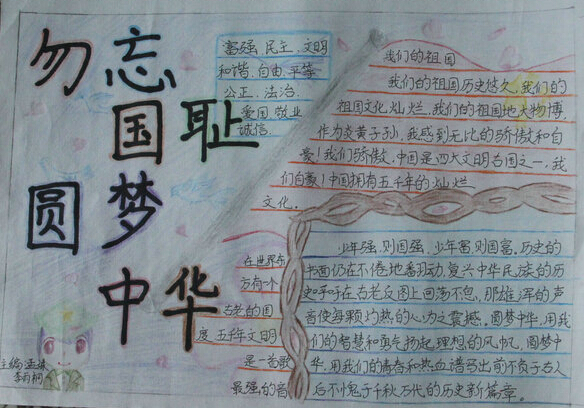 勿忘
国耻
圆梦
中华
富强、民主、文明
和谐、自由、平等
公正、法治、
爱国、敬业
诚信、
我们的祖国
我们的祖国历史悠久,我们的
祖国文化灿烂,我们的祖国地大物博
作为炎黄子孙,我感到无比的骄傲和自
豪!我们骄傲,中国是四大文明古国之一,我
们自豪!中国拥有五千年的灿烂
文化。
在世界东
方有一个
古老的国
度,五千年文明
是一首歌
最强的音
少年强,则国强,少年富,则国富。历史的
书面仍在不倦地翻动,复兴中华民族的历
史呼吁在古老版图上回荡不息,那雄浑的声
音使每颗灼热的心为之震撼。圆梦中华,用我
们的智慧和勇气扬起理想的风帆。圆梦中
华,用我们的青春和热血谱写出前不负于古人
后不愧于千秋万代的历史新篇章。
主编:孟
李雨桐